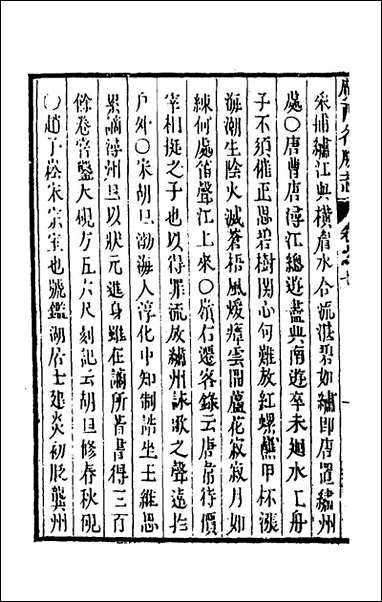 采捕繡江與橫䆠水合流湛碧如繡即唐置繡州
處〇唐曹唐潯江總遊盡興南遊卒未迴水工舟
子不須催正思碧樹關心句難放紅螺蘸甲杯漲
海潮生陰火滅蒼梧風煖瘴雲開蘆花寂寂月如
練何處笛聲江上來〇嶺石遷客錄云唐前待價
宰相挺之子也以得罪流放繡州詠歌之聲遠於
戶外〇宋胡旦渤海人淳化中知制誥坐王維恩
累謫潯州旦以狀元進身雖在謫所肯書得三百
餘卷嘗鑿大硯方五六尺刻記云胡旦修春秋硯
〇趙子崧宋宗室也號鑑湖居士建炎初貶龔州